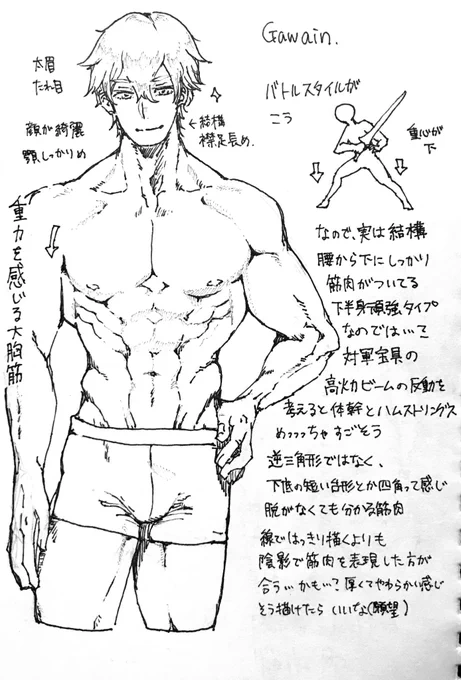 Gawain.
太眉
たれ目
顔が綺麗
顎しっかりめ
←結構
襟足長め.
バトルスタイルが
こう
重心が
下
重力を感じる大胸筋
なので、実は結構
腰から下にしっかり
筋肉がついてる
下半身頑強タイプ
なのでは…?
対軍宝具の
高火力ビームの反動を
考えると体幹とハムストリングス
めっっっちゃすごそう
逆三角形ではなく、
下底の短い台形とか四角って感じ
脱がなくても分かる筋肉
線ではっきり描くよりも
陰影で筋肉を表現した方が
合う…かもい?厚くてやわらかい感じ
そう描けたらいいな(願望)